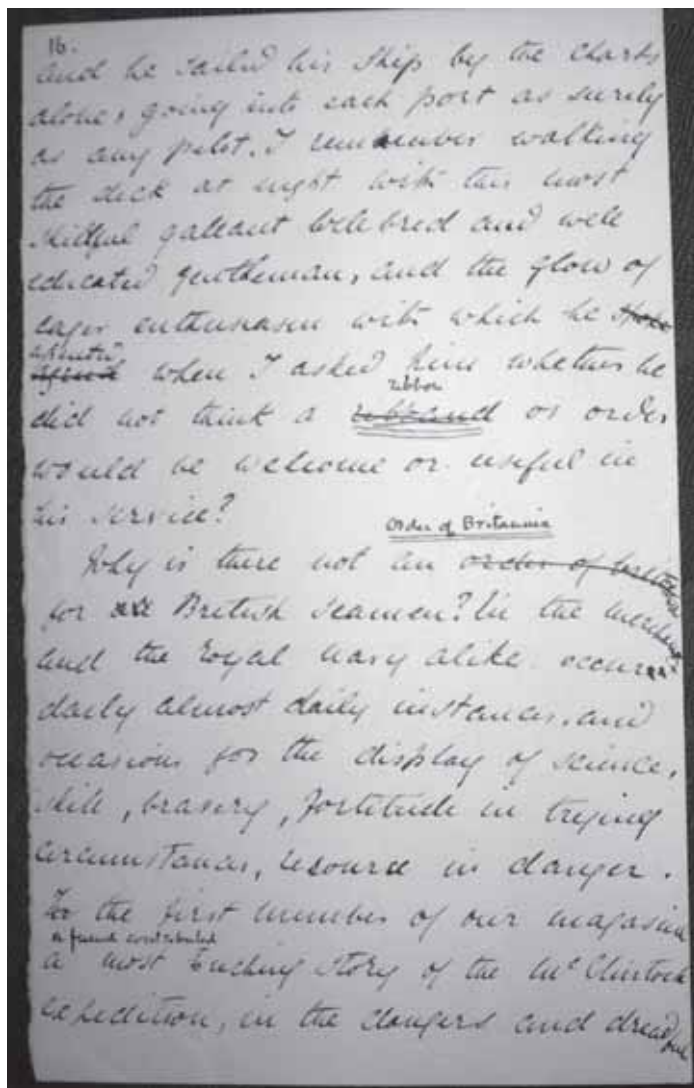 16.
and he sailed his ship by the charts
alone, going into each port as surely
as any pilot. I remember walking
the deck at night with this most
skilful gallant well bred and well
educated gentleman, and the glow of
eager enthusiasm with which he
assented
when I asked him whether he
ribbon
did not think a ribband or order
would be welcome or useful in
his service?
Order of Britannia
Why is there not an order of Britannia
for British seamen? In the merchant
and the royal navy alike occur
daily almost daily instances, and
occasions for the display of science,
skill, bravery, fortitude in trying
circumstances, resource in danger.
In the first number of our magazine
a friend contributed
a most touching story of the McClintock
expedition, in the dangers and dreadful